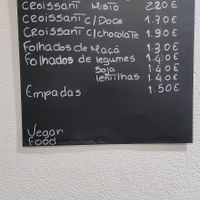 Croissant Misto 2.20€
Croissant c/Doce 1.70€
Croissant c/chocolate 1.90€
Folhados de Maçã 1.30€
Folhados de legumes 1.40€
Soja 1.40€
lentilhas 1.40€
Empadas 1.50€
Vegan
Food